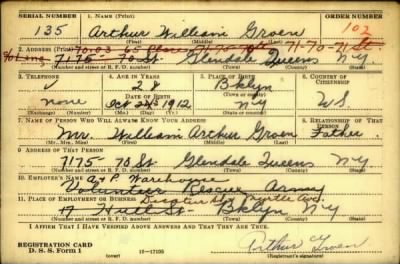 SERIAL NUMBER 1. NAME (Print) ORDER NUMBER
135 Arthur William Groen 102
(First) (Middle) (Last)
2. ADDRESS (Print)
7175 - 70 St. Glendale Queens N.Y.
(Number and street or R. F. D. number) (Town) (County) (State)
3. TELEPHONE 4. AGE IN YEARS 5. PLACE OF BIRTH 6. COUNTRY OF CITIZENSHIP
28 Bklyn
none DATE OF BIRTH (Town or county)
Oct 24 1912 NY US
(Exchange) (Number) (Mo.) (Day) (Yr.) (State or country)
7. NAME OF PERSON WHO WILL ALWAYS KNOW YOUR ADDRESS 8. RELATIONSHIP OF THAT PERSON
Mr. William Arthur Groen Father
(Mr., Mrs., Miss) (First) (Middle) (Last)
9. ADDRESS OF THAT PERSON
7175 70 St. Glendale Queens N.Y
(Number and street or R. F. D. number) (Town) (County) (State)
10. EMPLOYER'S NAME
A & P Warehouse
Volunteer Rescue Army
11. PLACE OF EMPLOYMENT OR BUSINESS
17 Hull St - Bklyn NY
(Number and street or R. F. D. number) (Town) (County) (State)
I AFFIRM THAT I HAVE VERIFIED ABOVE ANSWERS AND THAT THEY ARE TRUE.
REGISTRATION CARD
D. S. S. Form 1 16—17105 (over) Arthur W Groen
(Registrant's signature)